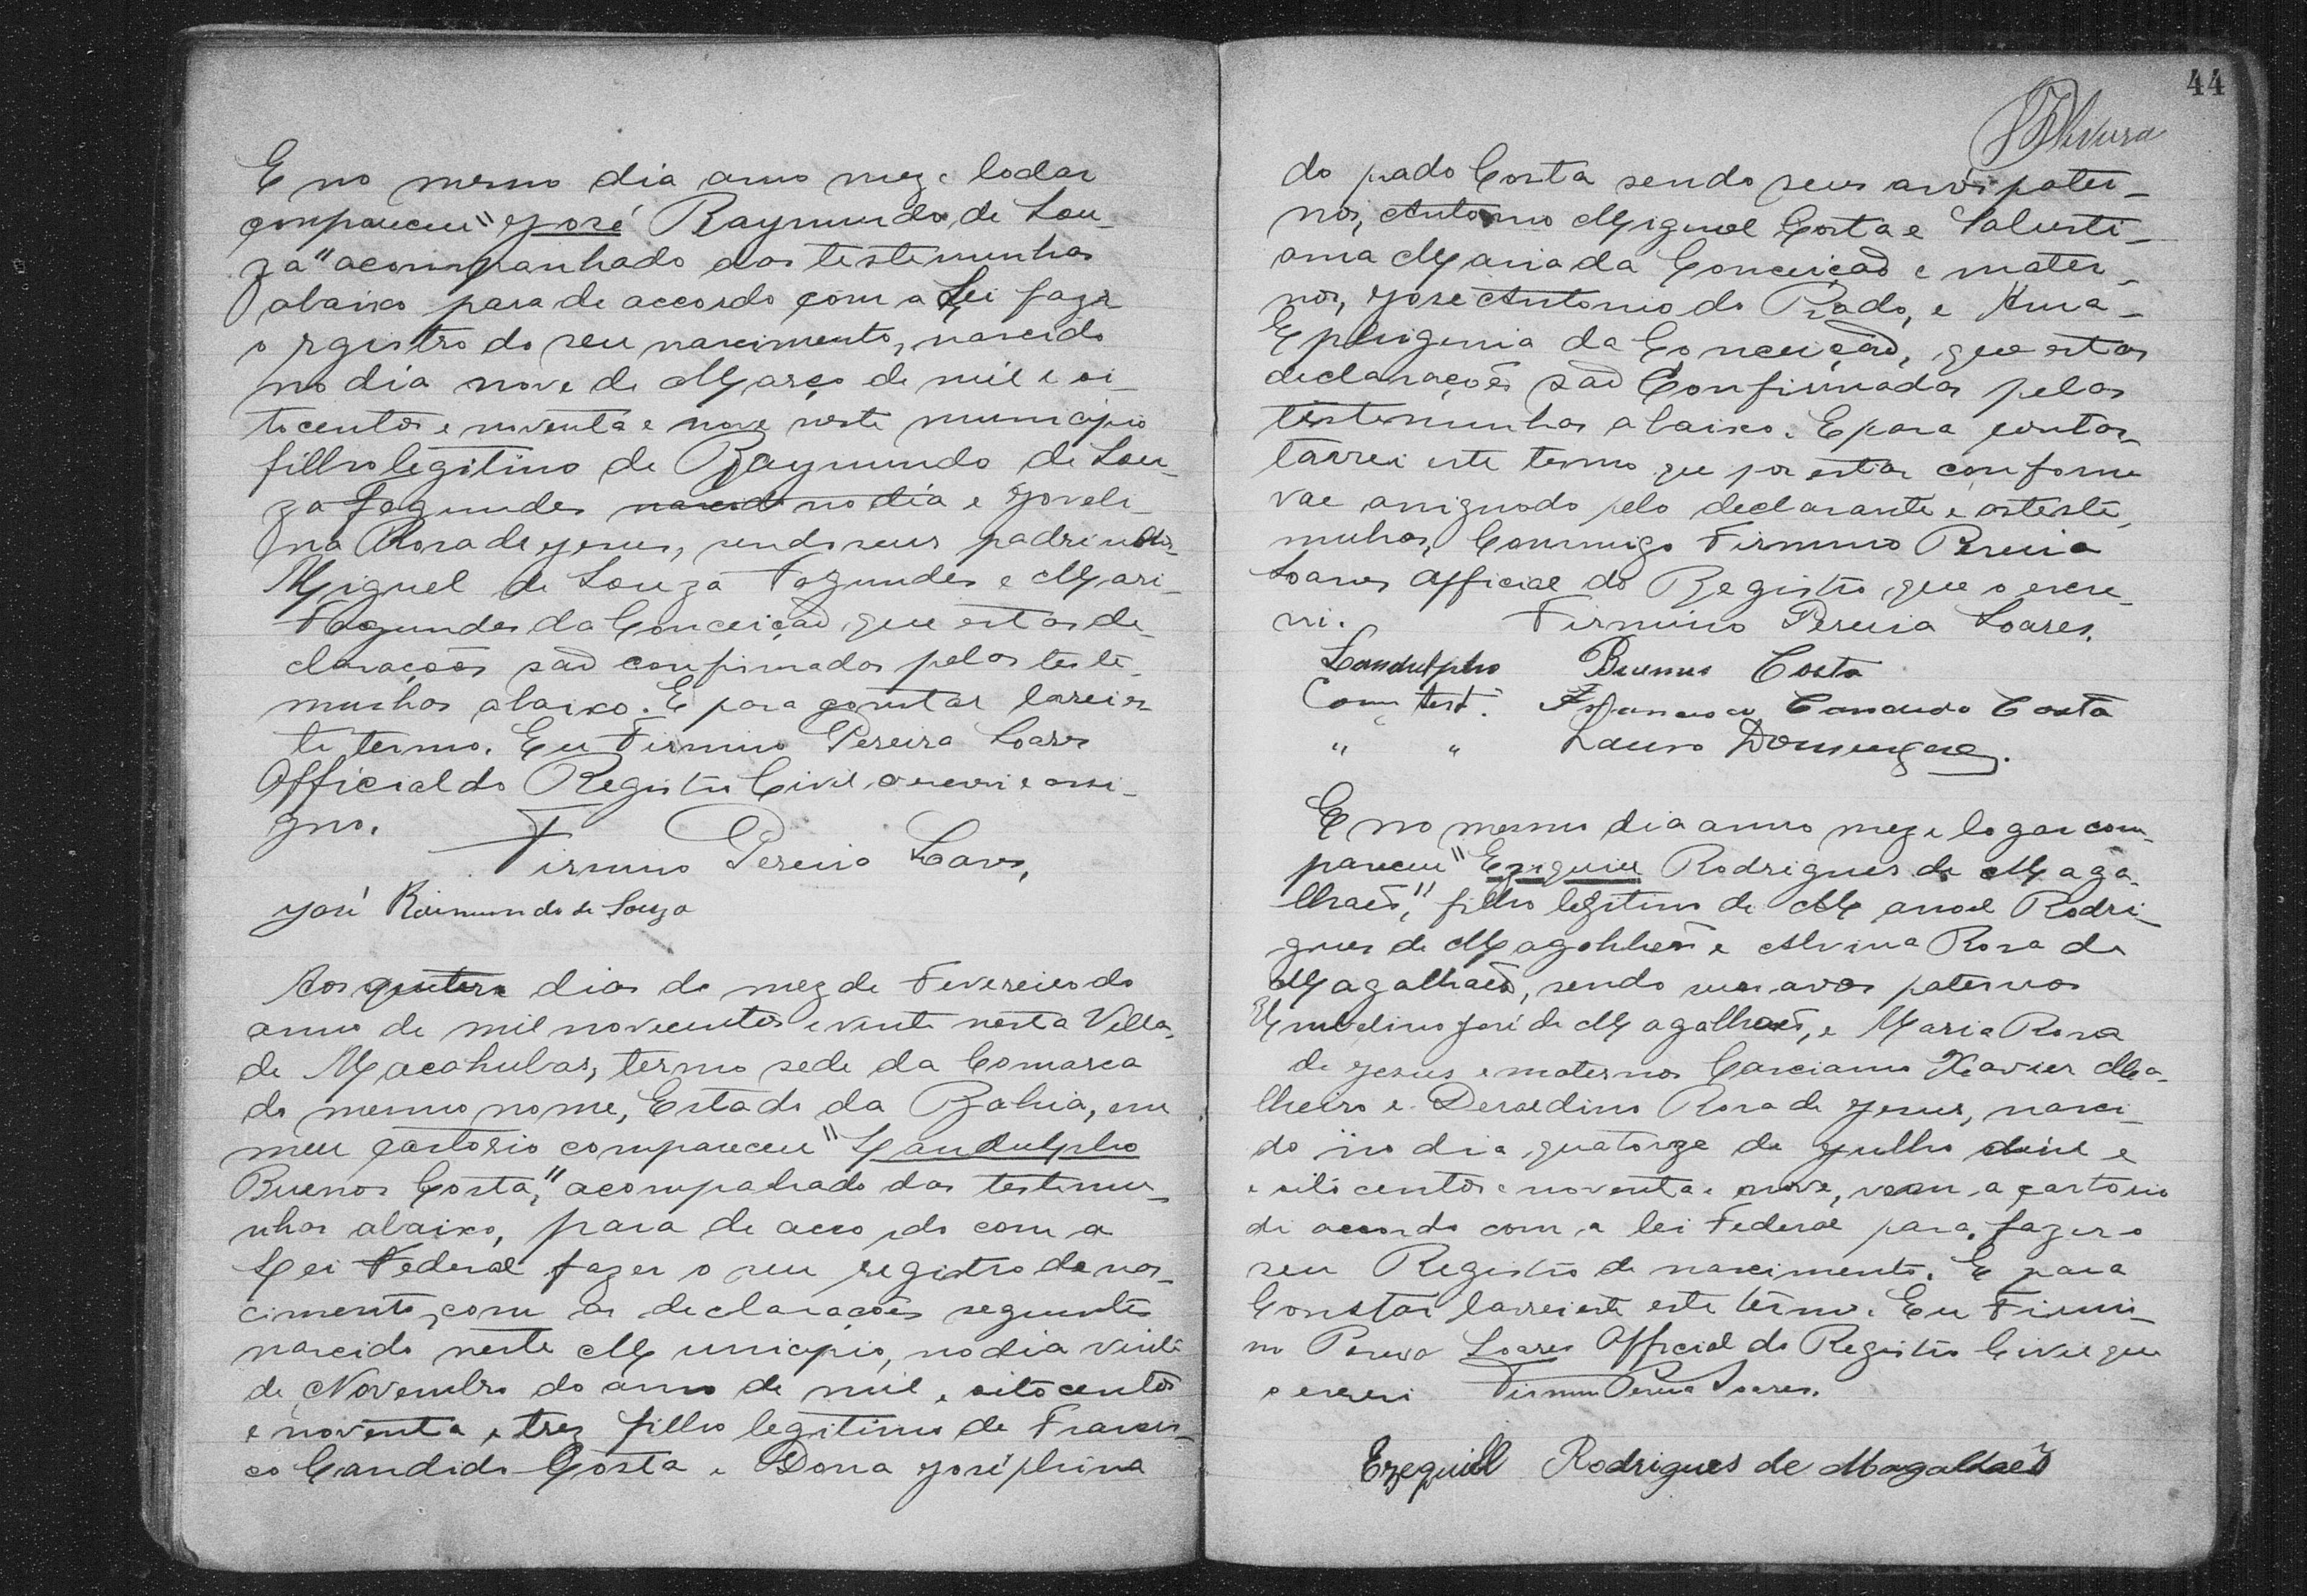 E no mesmo dia anno mez e lodar
compareceu "José Raymundo de Sou-
za" acompanhado das testemunhas
abaixo para de accordo com a Lei fazer
o rgistro do seu nascimento, nascido
no dia nove de Março de mil e oi-
tocentos e noventa e nove neste municipio
filho legitimo de Raymundo de Sou-
za Fagundes nascid no dia e Joveli-
na Rosa de Jesus, sendo seus padrinhos
Miguel de Souza Fagundes e Mari-
Fagundes da Conceição que estas de-
clarações são confirmadas pelas teste-
munhas abaixo. E para constar larei es-
te termo. Eu Firmino Pereira Soares
Official do Registro Civil o escrevi e assi-
gno.
Firmino Pereira Soares,
José Raimundo de Souza
Aos dias do mez de Fevereiro do
anno de mil novecentos e vinte nesta Villa
de Macahubas, termo sede da Comarca
do mesmo nome, Estado da Bahia, em
meu cartorio compareceu "Landulpho
Buenos Costa," acompahado das testemu-
nhas abaixo, para de accordo com a
Lei Federal fazer o seu registro de nas-
cimento, com as declarações seguintes
nascido neste Municipio, no dia vinte
de Novembro do anno de mil e oitocentos
e noventa e trez filho legitimo de Francis-
co Candido Costa e Dona Joséphina
44
do prado Costa sendo seus avós pater-
nos, Antonio Miguel Costa e Salusti-
ana Maria da Conceição e mater-
nos, José Antonio do Prado, e Anna-
Ephigenia da Conceição, que estas
declarações são Confirmadas pelas
testemunhas abaixo. E para contar
larrei este termo que por estar conforme
vae assignado pelo declarante e as teste-
munhas, Commigo Firmino Pereira
Soares Official do Registro que o escre-
vi. Firmino Pereira Soares,
Landulpho Buenos Costa
Com test. Francisco Candido Costa
" " Lauro Domingues.
E no mesmo dia anno mez e logar com-
pareceu "Ezequiel Rodrigues de Maga-
lhães," filho legitimo de Manoel Rodri-
gues de Magalhães e Alvina Rosa de
Magalhães, sendo seus avos paternos
José de Magalhães, e Maria Rosa
de Jesus e maternos Carciano Xavier Ma-
lheiro e Deraldina Rosa de Jesus, nasci-
do no dia quatorze de Julho de mil e
e oito centos e noventa e nove, vem a cartorio
de accordo com a lei Federal para fazer o
seu Registro de nascimento. E para
Constar larrei este este termo. Eu Firmi-
no Pereira Soares Official do Registro Civil que
o escrevi Firmino Pereira Soares.
Ezequiell Rodrigues de Magalhaes